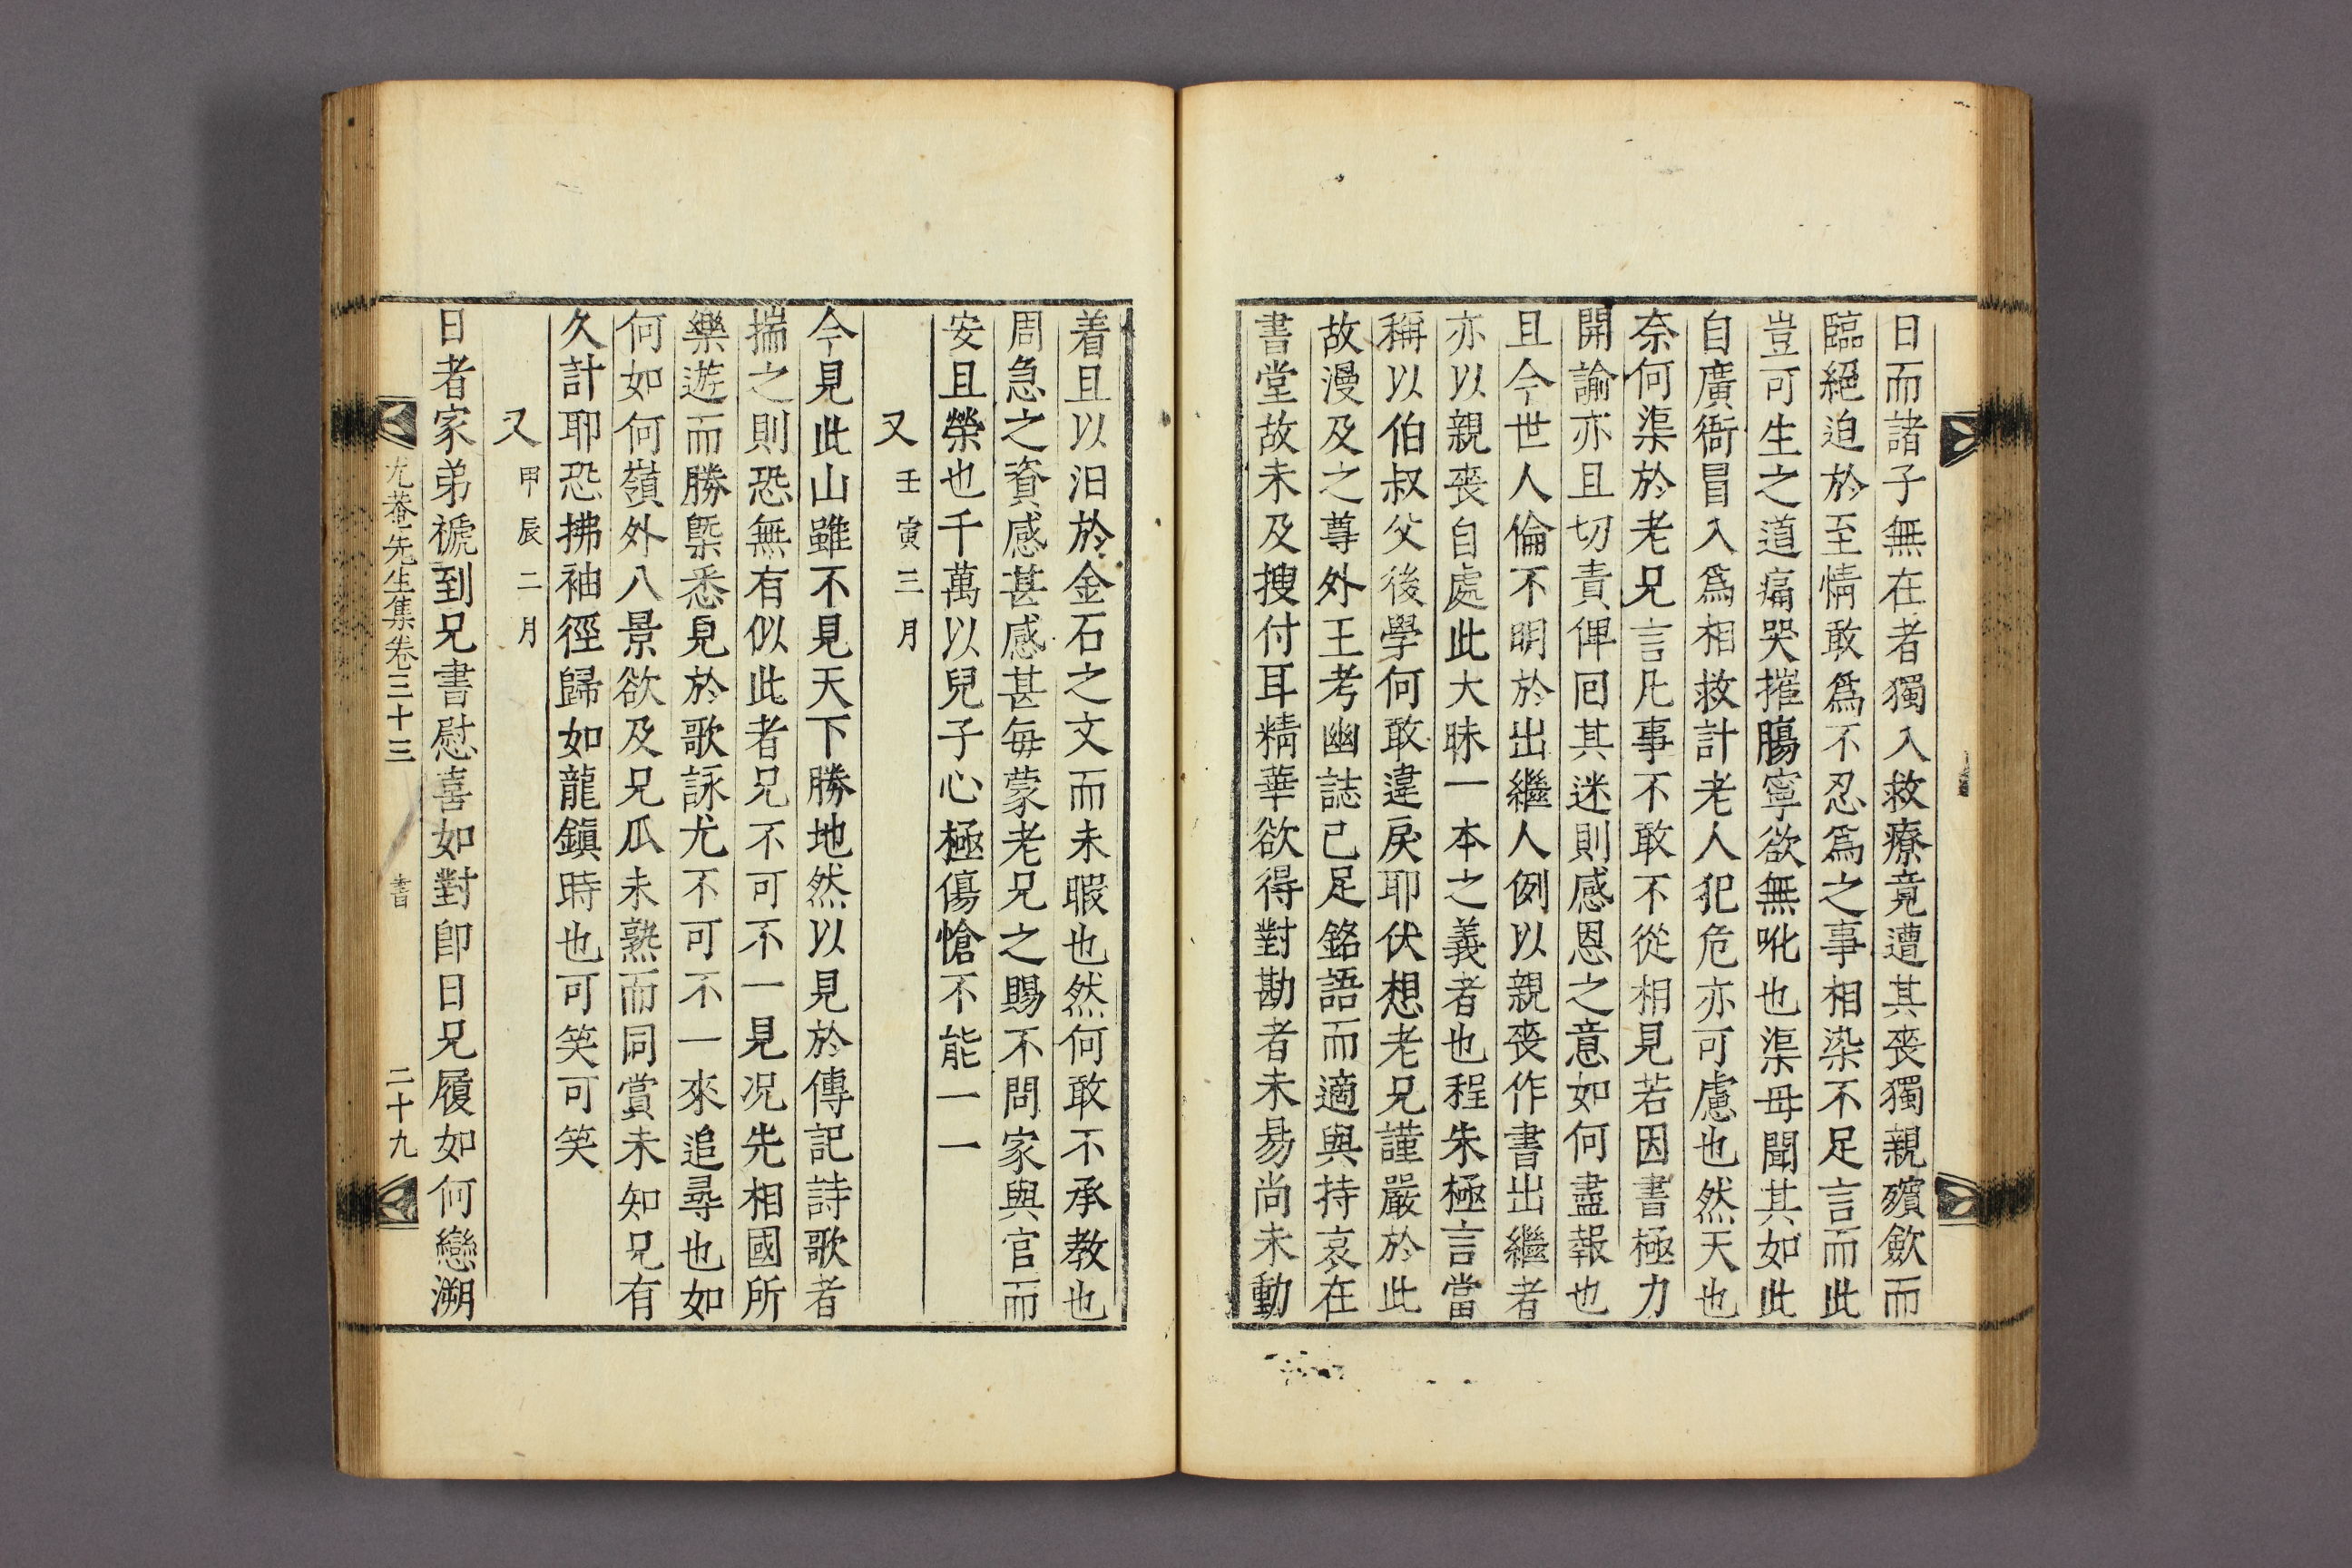 日而諸子無在者獨入救療竟遭其喪獨親殯斂而
臨絕迫於至情敢爲不忍爲之事相染不足言而此
豈可生之道痛哭摧膓寧欲無吪也渠毋聞其如此
自廣衙冒入爲相救計老人犯危亦可慮也然天也
奈何渠於老兄言凡事不敢不從相見若因書極力
開諭亦且切責俾回其迷則感恩之意如何盡報也
且今世人倫不明於出繼人例以親喪作書出繼者
亦以親喪自處此大昧一本之義者也程朱極言當
稱以伯叔父後學何敢違戾耶伏想老兄謹嚴於此
故漫及之尊外王考幽誌已足銘語而適與持哀在
書堂故未及搜付耳精華欲得對勘者未易尚未動
着且以汨於金石之文而未暇也然何敢不承教也
周急之資感甚感甚每蒙老兄之賜不問家與官而
安且榮也千萬以兒子心極傷愴不能一一
又壬寅三月
今見此山雖不見天下勝地然以見於傳記詩歌者
揣之則恐無有似此者兄不可不一見況先相國所
樂遊而勝槩悉見於歌詠尤不可不一來追尋也如
何如何嶺外八景欲及兄瓜未熟而同賞未知兄有
久計耶恐拂袖徑歸如龍鎭時也可笑可笑
又甲辰二月
日者家弟褫到兄書慰喜如對卽日兄履如何戀溯
尤菴先生集卷三十三 書 二十九